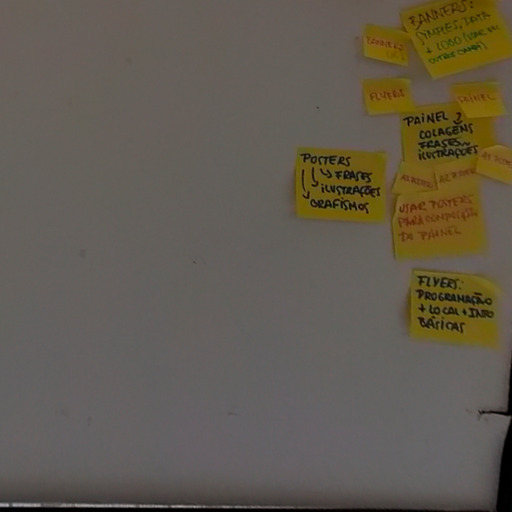 BANNERS:
SIMPLES, DATA
+ LOGO (USAR EM
BANNERS
FLYERS
PAINEL
PAINEL
COLAGENS
FRASES
ILUSTRAÇÕES
POSTERS
FRASES
ILUSTRAÇÕES
GRAFISMOS
USAR POSTERS
PARA COMPOSIÇÃO
DO PAINEL
FLYERS:
PROGRAMAÇÃO
+ LOCAL + INFO
BÁSICAS